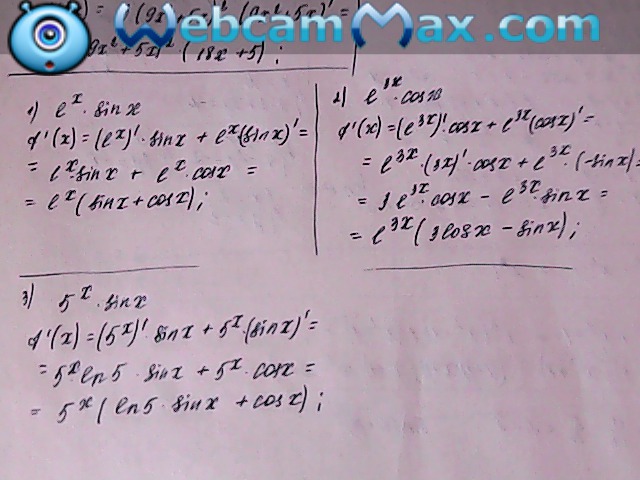 WebcamMax.com
(9x²+5x)² (18x+5);
1) e^x · sin x
f'(x) = (e^x)' · sin x + e^x · (sin x)' =
= e^x · sin x + e^x · cos x =
= e^x (sin x + cos x);
2) e^3x · cos x
f'(x) = (e^3x)' · cos x + e^3x (cos x)' =
= e^3x · (3x)' · cos x + e^3x · (-sin x) =
= 3 e^3x · cos x - e^3x · sin x =
= e^3x (3 cos x - sin x);
3) 5^x · sin x
f'(x) = (5^x)' · sin x + 5^x · (sin x)' =
= 5^x ln 5 · sin x + 5^x · cos x =
= 5^x (ln 5 · sin x + cos x);